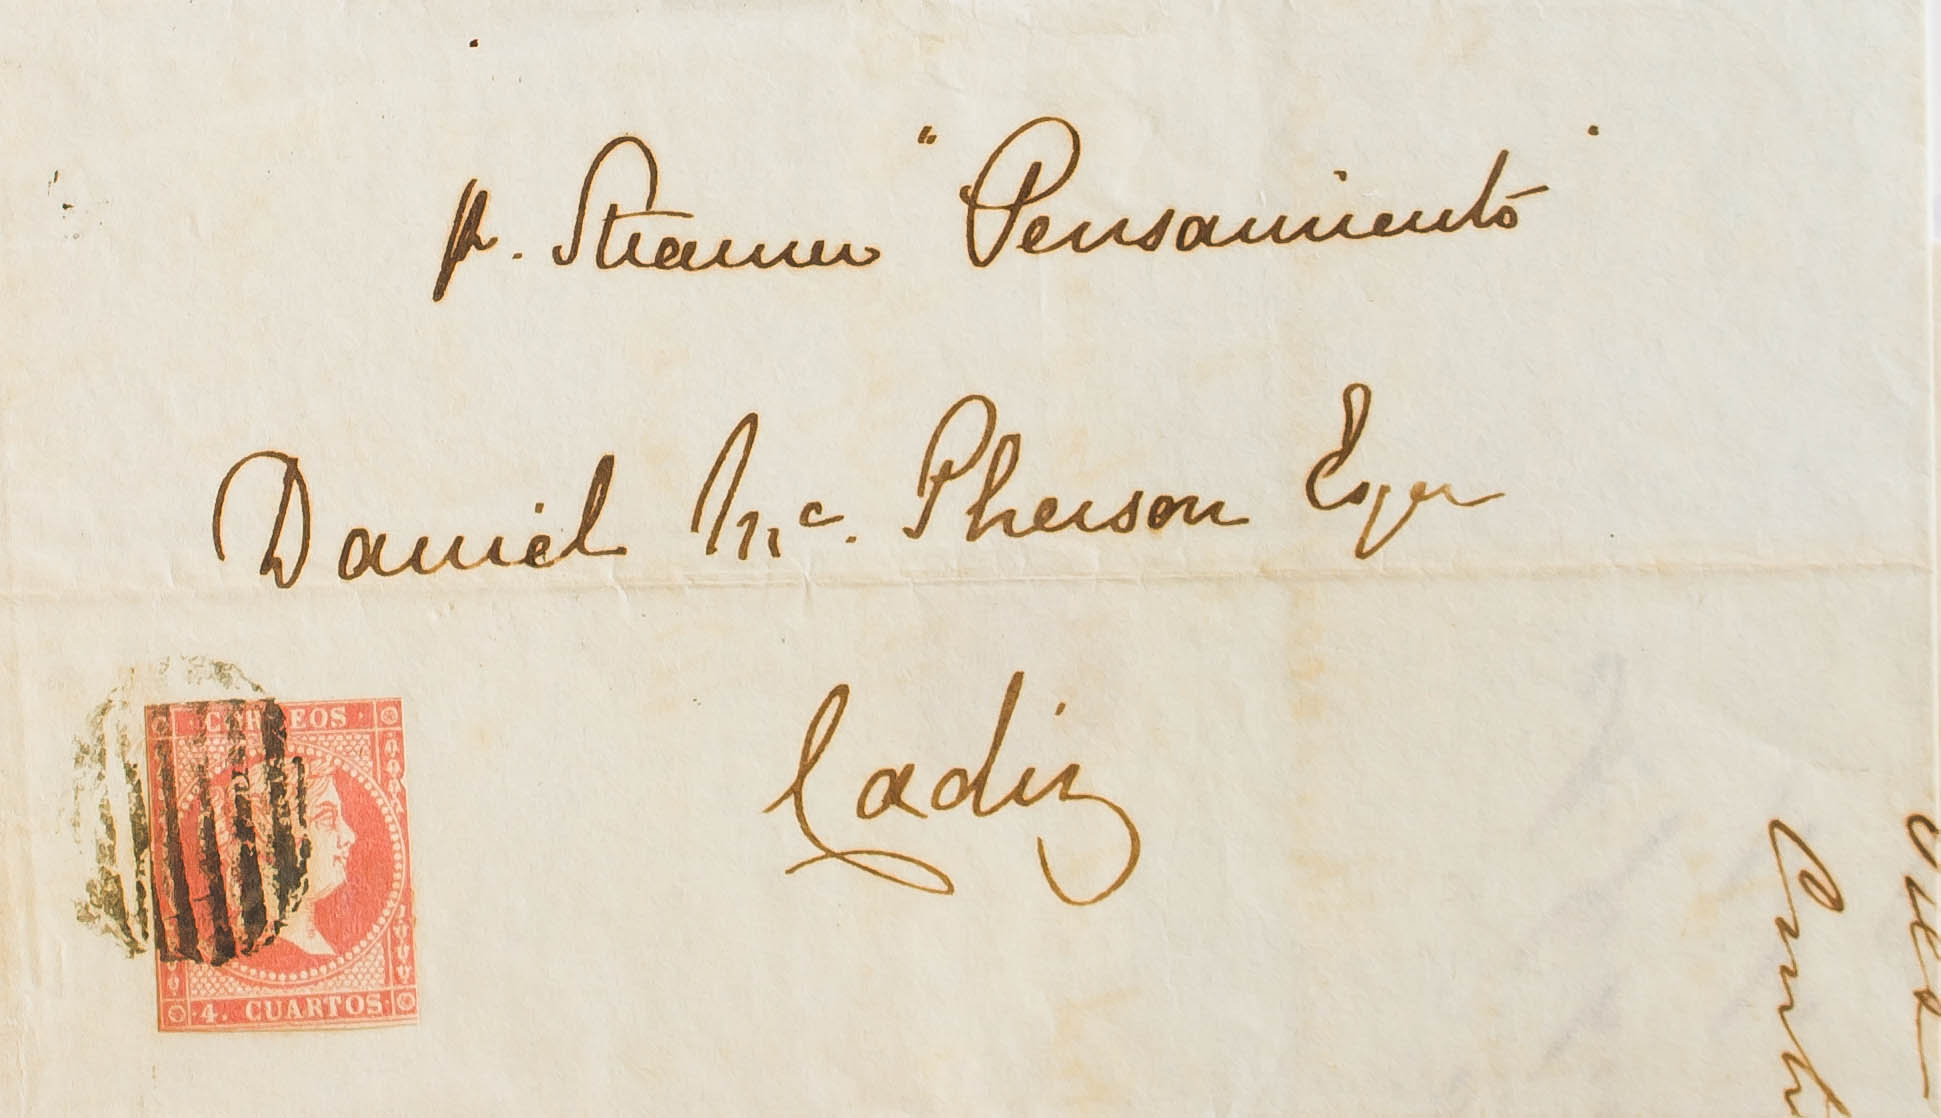 p. Steamer "Pensamiento"
Daniel Mc. Pherson Esqr
Cadiz
CORREOS
4. CUARTOS